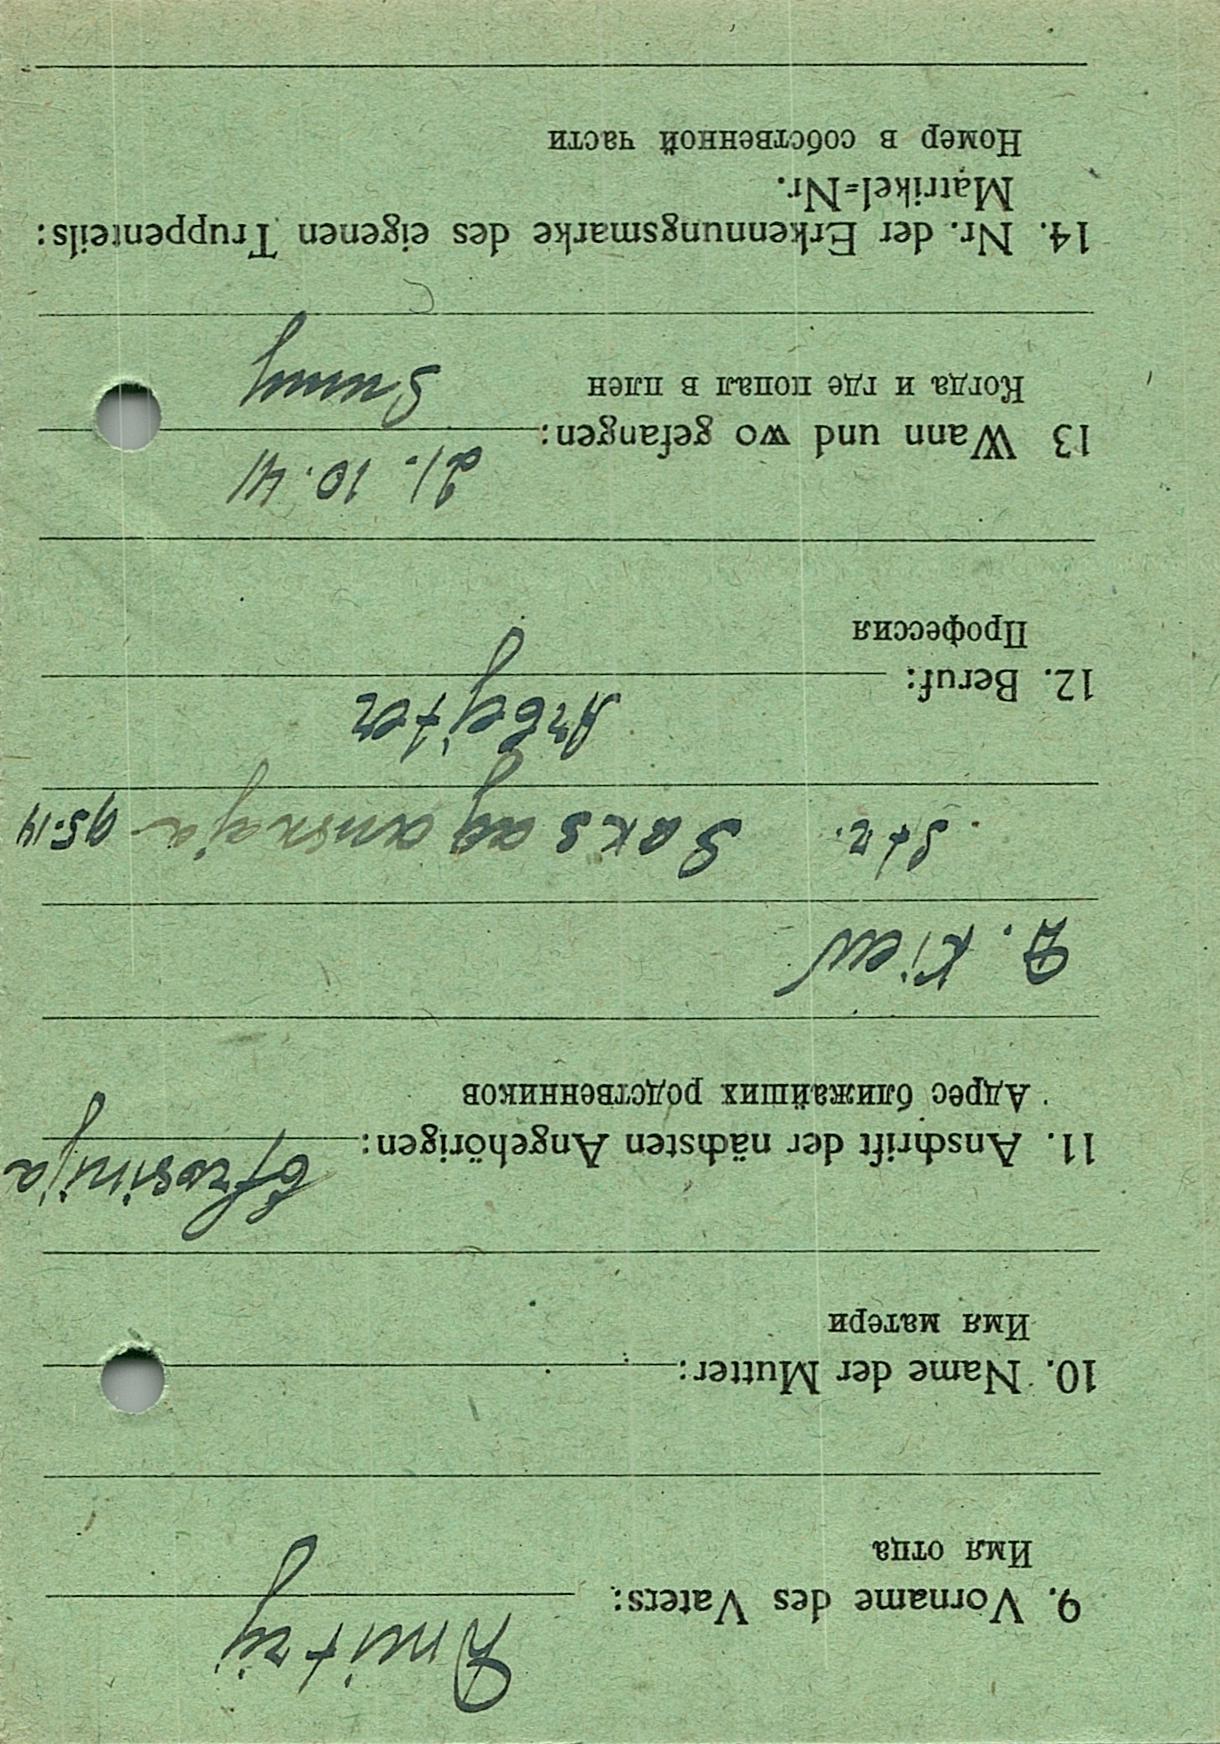 Dmitrij
9. Vorname des Vaters:
Имя отца
10. Name der Mutter:
Имя матери
Efrosinija
11. Anschrift der nächsten Angehörigen:
Адрес ближайших родственников
G. Kiew
Str. Saksaganskaja 95-14
Arbejter
12. Beruf:
Профессия
21.10.41
13 Wann und wo gefangen:
Когда и где попал в плен
Sumy
14. Nr. der Erkennungsmarke des eigenen Truppenteils:
Matrikel=Nr.
Номер в собственной части